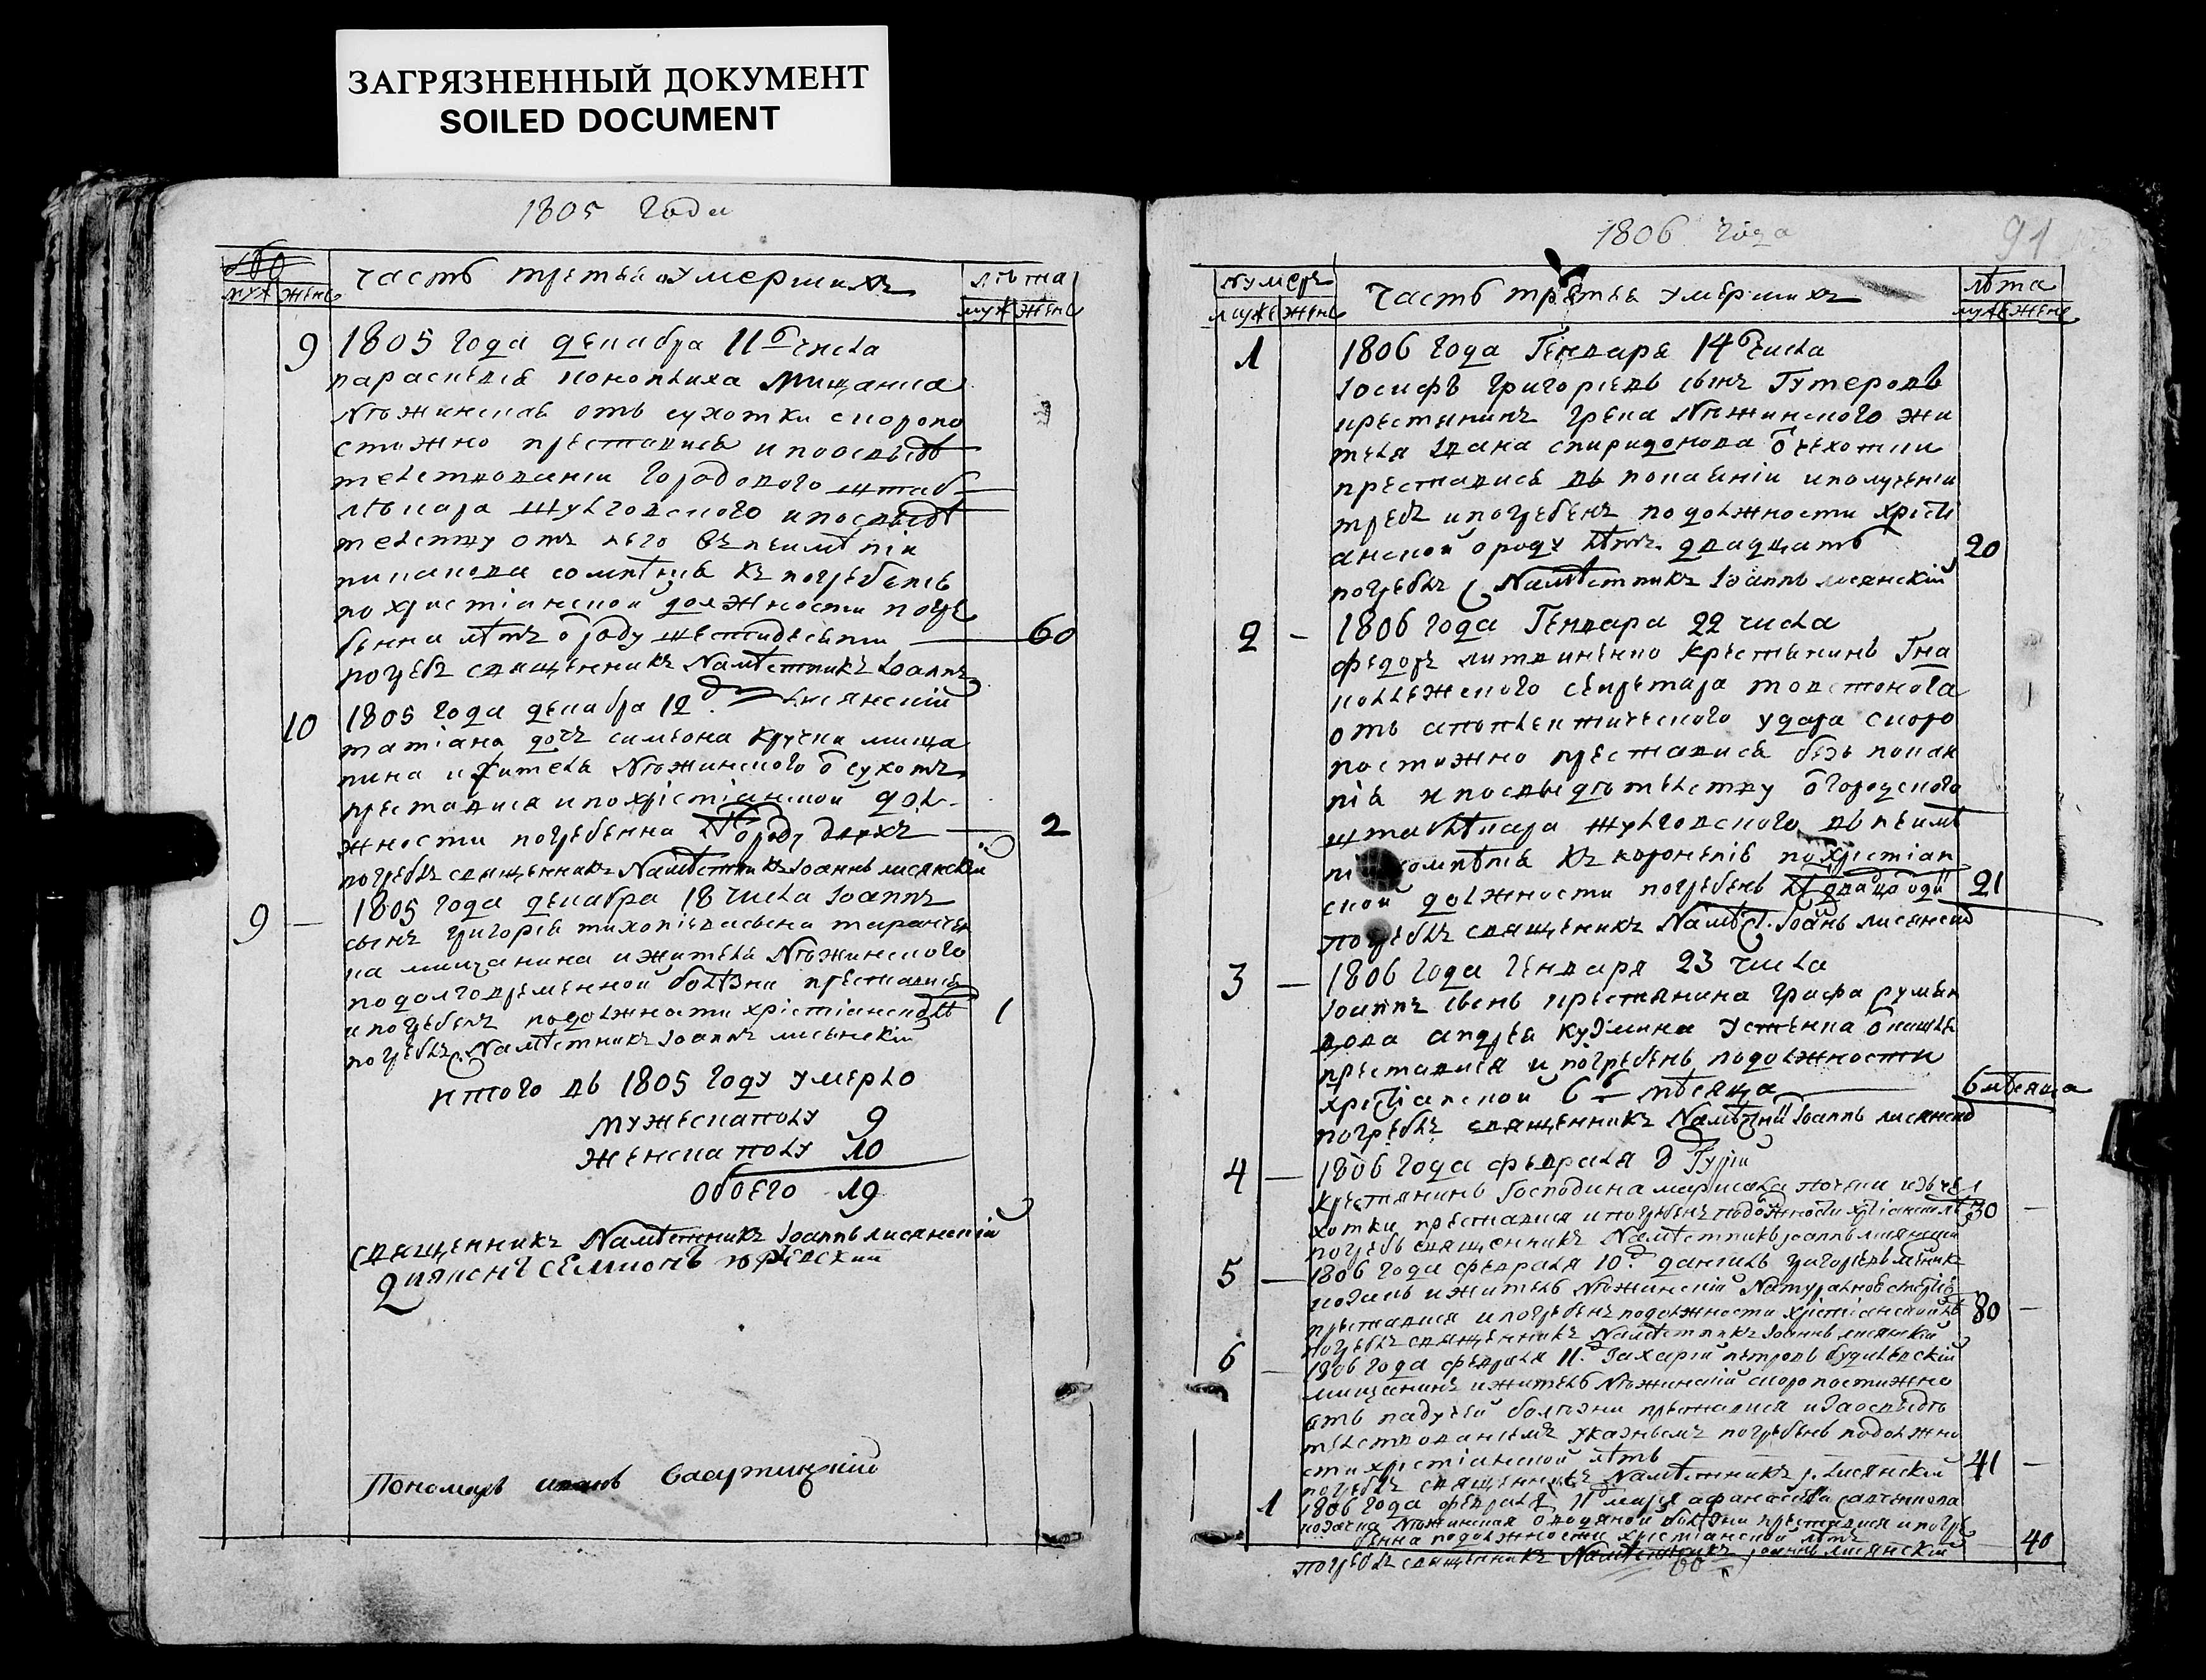 ЗАГРЯЗНЕННЫЙ ДОКУМЕНТ
SOILED DOCUMENT
1805 года
муж жене
часть третья о умершихъ
лѣта
муж жене
9 1805 года декабра 11 числа
параскевия коноплиха мищанка
Нѣжинская отъ сухотки скоропо
стижно преставися и по освѣдѣ
телствованіи городового штаб
лѣкара Шулговского и по свѣдѣ
телству отъ него въ неимѣніи
никакова сомнѣнія къ погребенію
по христіанской должности погре
бенна лѣтъ ѿ роду шестидесяти 60
погребъ священникъ Намѣстникъ Іоаннъ
Лисянский
10 1805 года декабра 12
татіана дочь симеона кручка мища
нина и жителя Нѣжинского ѿ сухотъ
преставися и по хрістіанской дол
жности погребенна лѣтъ ѿ роду двухъ 2
погребъ священникъ Намѣстникъ Іоаннъ лисянский
9 1805 года декабра 18 числа Іоаннъ
сынъ григорія тихонієва сына таранен
ка мищанина и жителя Нѣжинского
по долговременной болѣзни преставися
и погребенъ по должности хрістіанской лѣ 1
погребъ Намѣстникъ Іоаннъ лисянский
итого въ 1805 году умерло
мужеска полу 9
женска полу 10
обоего 19
священникъ Намѣстникъ Іоаннъ лисянский
Диякон Семионъ
Пономарь иванъ
1806 года
91
нумеръ
муже жене
часть третья умершихъ
лѣта
муже жене
1 1806 года Генваря 14 числа
Іосифъ григоріевъ сынъ Гутеровъ
крестянинъ грека Нѣжинского жи
теля Ивана спиридонова ѿ чехотки
преставися въ покаяніи и полученіи
требъ и погребенъ по должности хрісті
анской ѿ роду лѣтъ двадцать 20
погребъ С Намѣстникъ Іоаннъ лисянский
2 1806 года Генвара 22 числа
федоръ литвиненко крестянинъ Гна
коллежского секретара товстонога
отъ апоплектического удара скоро
постижно преставися безъ покая
нія и по свыдѣтелству ѿ городского
штаблѣкара Шулговского въ неимѣ
ні сомнѣнія къ хороненію по хрістіан
ской должности погребенъ лѣ двадц оди 21
погребъ священикъ Намѣст. Іоанъ лисянский
3 1806 года Генваря 23 числа
Іоаннъ сынъ крестянина графа румян
цова андрея кузмина Устенка ѿ кашля
преставися и погребенъ по должности
хрістіанской 6 мѣсяца 6 мѣсяца
погребъ священникъ Намѣстни Іоаннъ лисянский
4 1806 года февраля 8 Гурій
крестянинъ Господина маришка изъ че
хотки преставися и погребенъ по должности хрістіанской лѣ 30
погребъ священникъ Намѣстникъ Іоаннъ лисянский
5 1806 года февраля 10 даниилъ григоріевъ
козакъ и житель Нѣжинский
преставися и погребенъ по должности хрістіанской лѣ 80
погребъ священникъ Намѣстникъ Іоаннъ лисянский
6 1806 года февраля 11 Захарій петровъ
мищанинъ и житель Нѣжинский скоропостижно
отъ падучей болѣзни преставися и за освѣдѣ
телствованіемъ указнымъ погребенъ по должно
сти хрістіанской лѣтъ 41
погребъ священникъ Намѣстникъ І. Лисянский
1 1806 года февраля 11 марія афанасіева
козачка Нѣжинская ѿ водяной болѣзни преставися и погре
бенна по должности хрістіанской лѣтъ 40
погребъ священникъ Намѣстникъ Іоаннъ лисянский